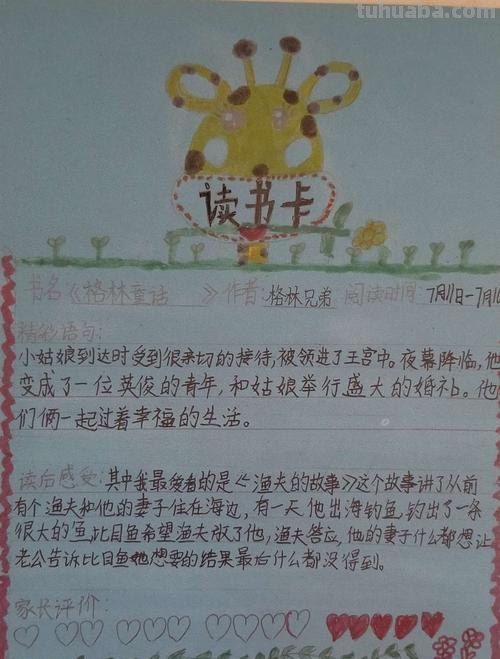 tuhuaba.com
读书卡
书名《格林童话 》作者:格林兄弟 阅读时间:7月1日-7月1
精彩语句:
小姑娘到达时受到很亲切的接待,被领进了王宫中。夜幕降临,他
变成了一位英俊的青年,和姑娘举行盛大的婚礼。他
们俩一起过着幸福的生活。
读后感受:其中我最爱看的是《渔夫的故事》这个故事讲了从前
有个渔夫和他的妻子住在海边,有一天他出海钓鱼,钓出了一条
很大的鱼,比目鱼希望渔夫放了他,渔夫答应,他的妻子什么都想让
老公告诉比目鱼她想要的结果最后什么都没得到。
家长评价: